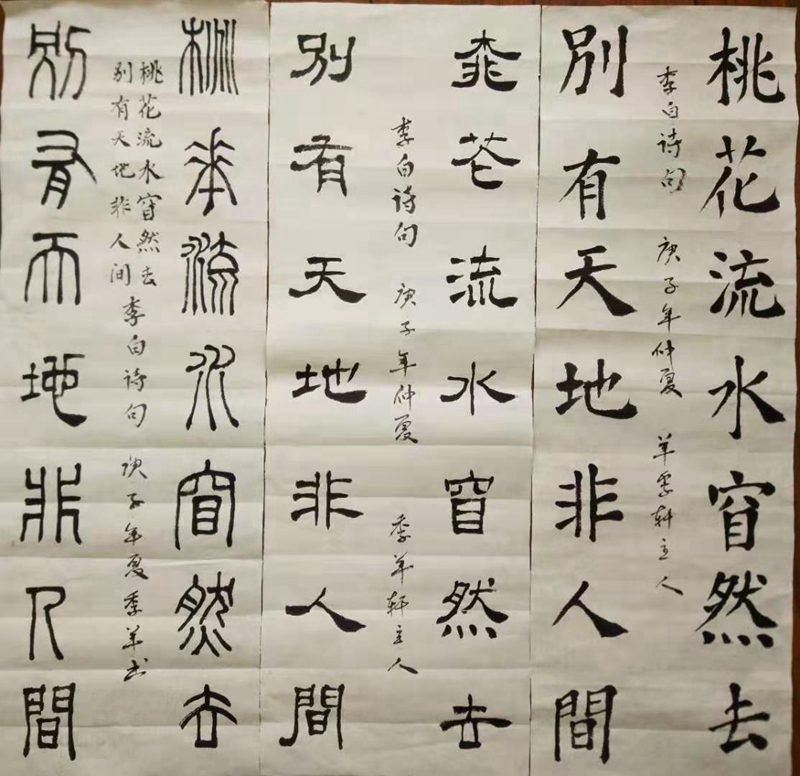 桃花流水窅然去
李白诗句 庚子年仲夏 羊 轩主人
別有天地非人間
桃花流水窅然去
李白诗句 庚子年仲夏 季羊轩主人
別有天地非人間
桃花流水窅然去
桃花流水窅然去
别有天地非人间 李白诗句 庚子年夏季羊书
別有天地非人間